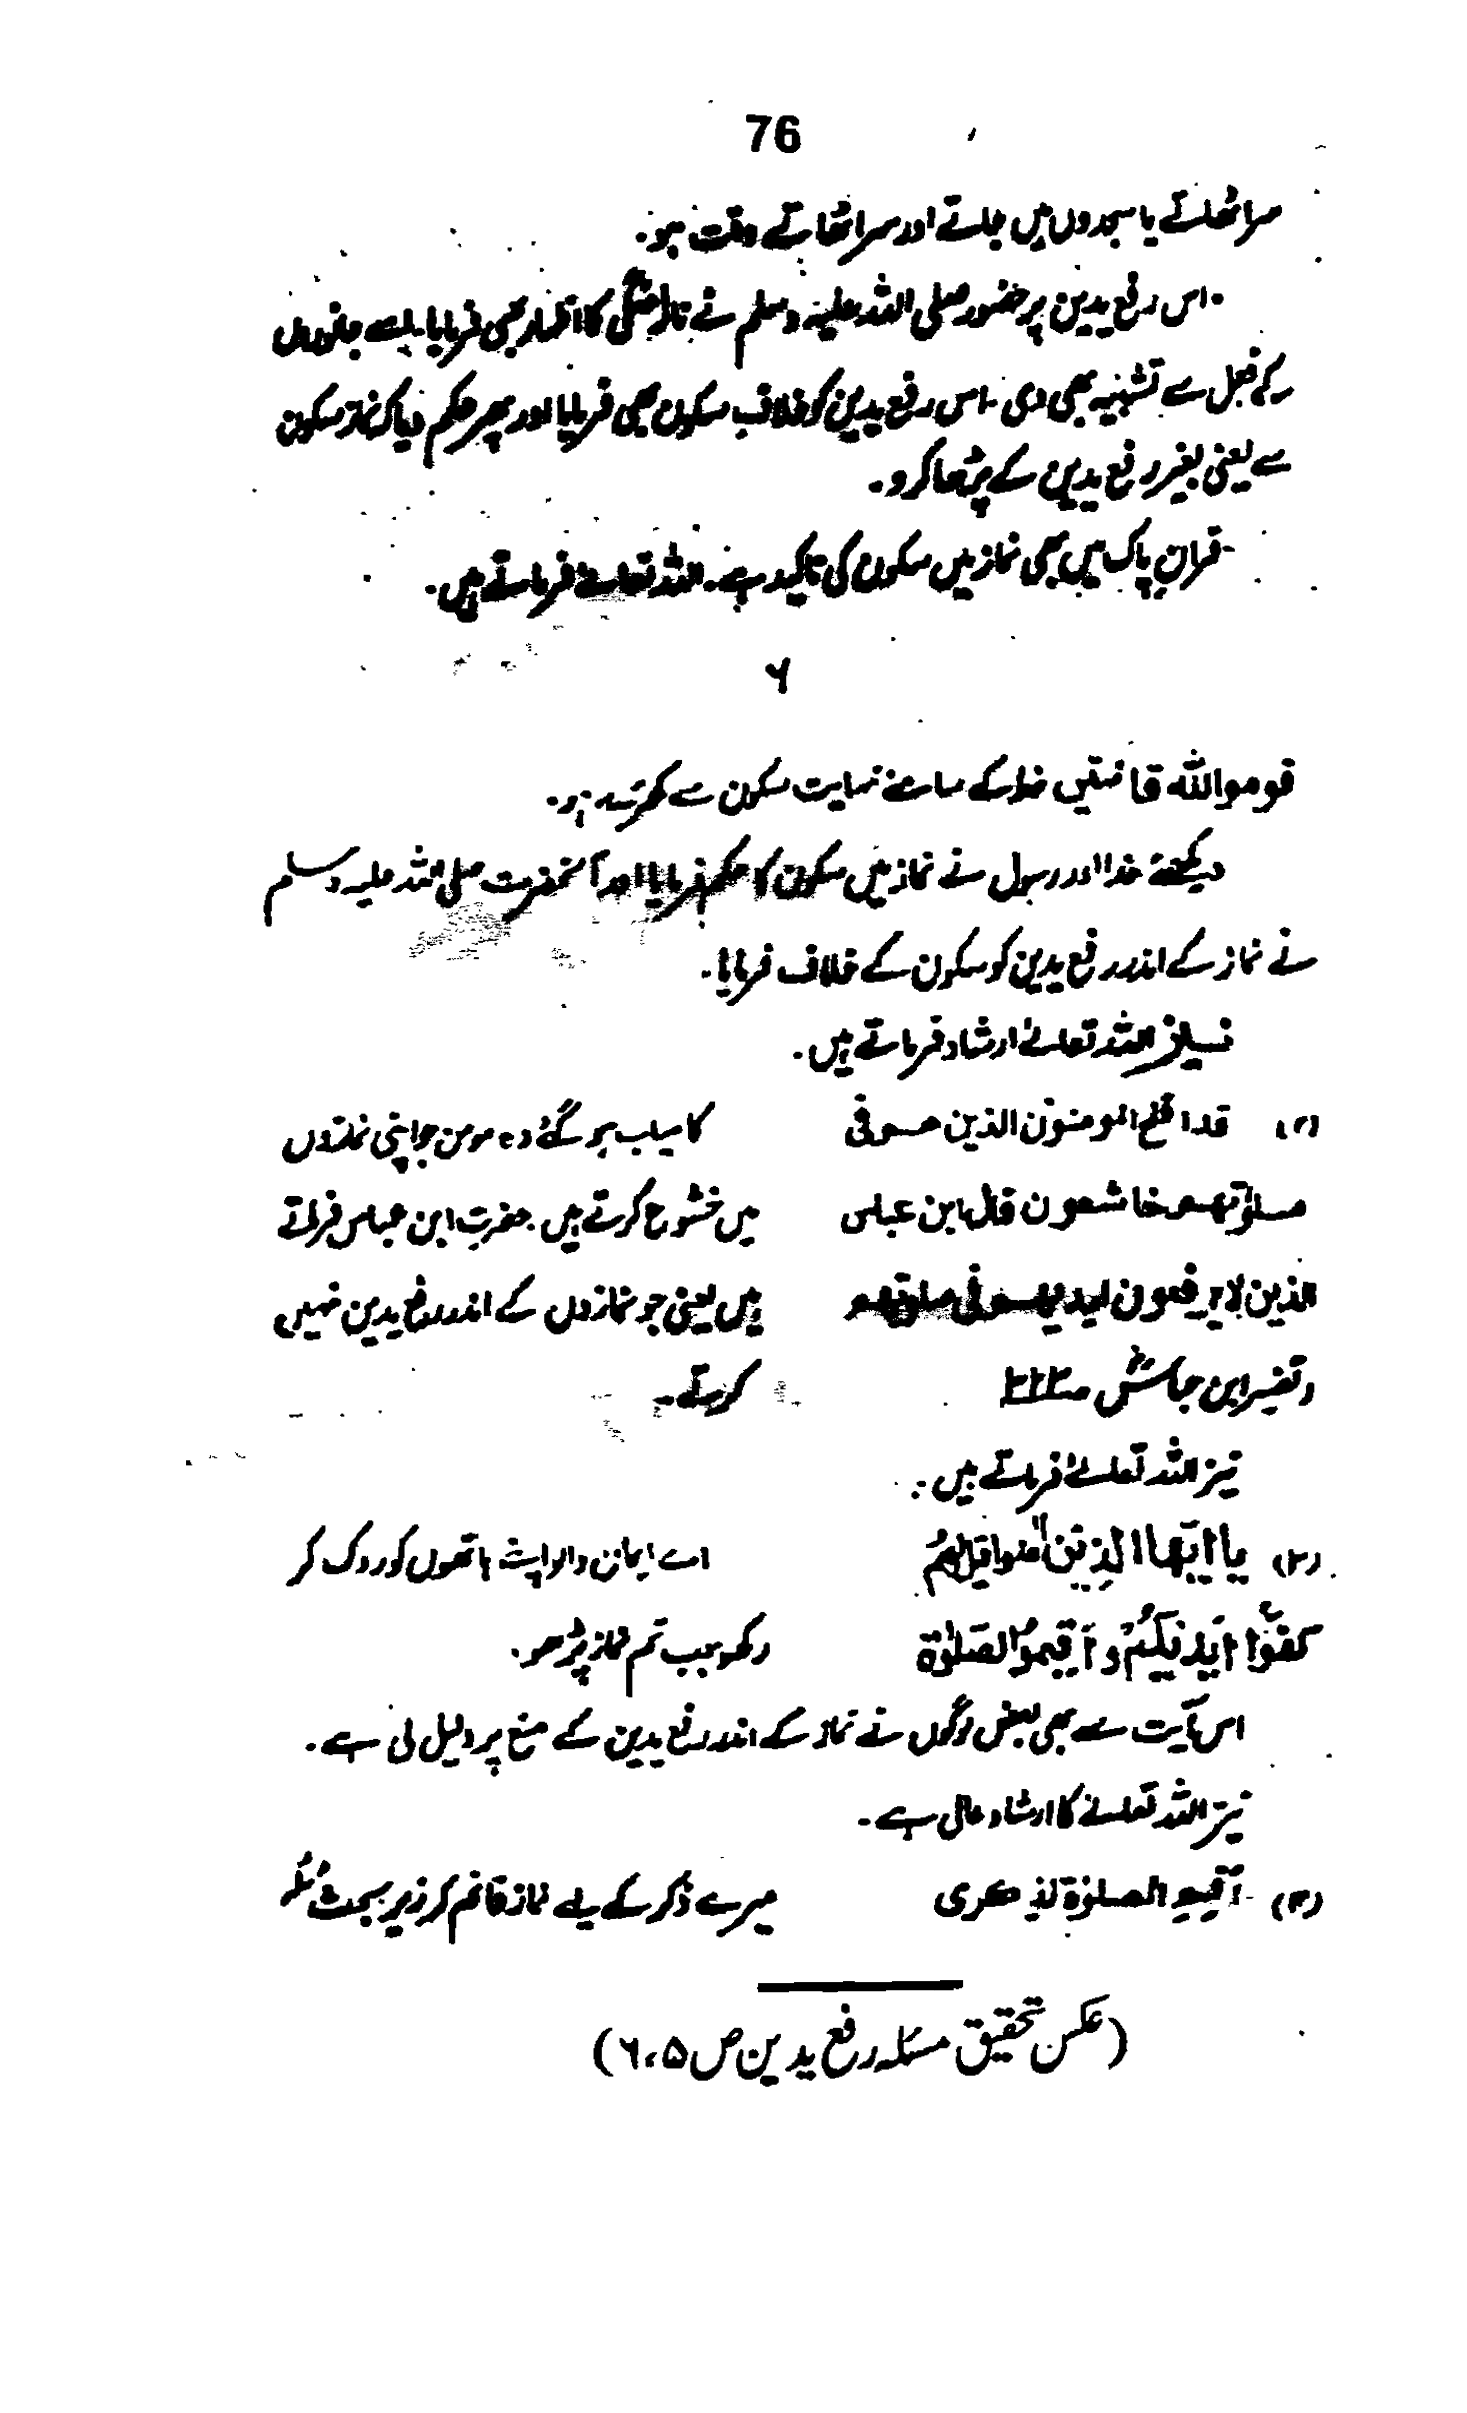 76
سر اٹھاتے یا سجدوں میں جاتے اور سر اٹھاتے وقت ہو۔
اس رفع یدین پر حضور صلی اللہ علیہ وسلم نے ناراضگی کا اظہار بھی فرمایا اسے جانوروں
کے فعل سے تشبیہ بھی دی۔ اس رفع یدین کو خلافِ سکون بھی فرمایا اور پھر حکم دیا کہ نماز سکون
سے یعنی بغیر رفع یدین کے پڑھا کرو۔
قرآنِ پاک میں بھی نماز میں سکون کی تاکید ہے۔ اللہ تعالےٰ فرماتے ہیں۔
۶
قوموا للہ قانتین خدا کے سامنے نہایت سکون سے کھڑے ہو۔
دیکھئے خدا اور رسول نے نماز میں سکون کا حکم فرمایا اور آنحضرت صلی اللہ علیہ وسلم
نے نماز کے اندر رفع یدین کو سکون کے خلاف فرمایا۔
نیز اللہ تعالےٰ ارشاد فرماتے ہیں۔
قد افلح المومنون الذین ھم فی کامیاب ہو گئے وہ مومن جو اپنی نمازوں
صلوٰتھم خاشعون قال ابن عباس میں خشوع کرتے ہیں۔ حضرت ابن عباس فرماتے
الذین لا یرفعون ایدیھم فی صلوٰتھم ہیں یعنی جو نمازوں کے اندر رفع یدین نہیں
(تفسیر ابن عباسؓ کرتے۔
نیز اللہ تعالےٰ فرماتے ہیں:
یا ایھا الذین اٰمنوا قیل لھم اے ایمان والو اپنے ہاتھوں کو روک کر
کفوا ایدیکم و اقیموا الصلوٰۃ رکھو جب تم نماز پڑھو۔
اس آیت سے بھی بعض لوگوں نے نماز کے اندر رفع یدین کے منع پر دلیل لی ہے۔
نیز اللہ تعالےٰ کا ارشاد عالی ہے۔
اقیم الصلوٰۃ لذکری میرے ذکر کے لیے نماز قائم کر زیرِ بحث
(عکس تحقیق مسئلہ رفع یدین ص ۵، ۶)